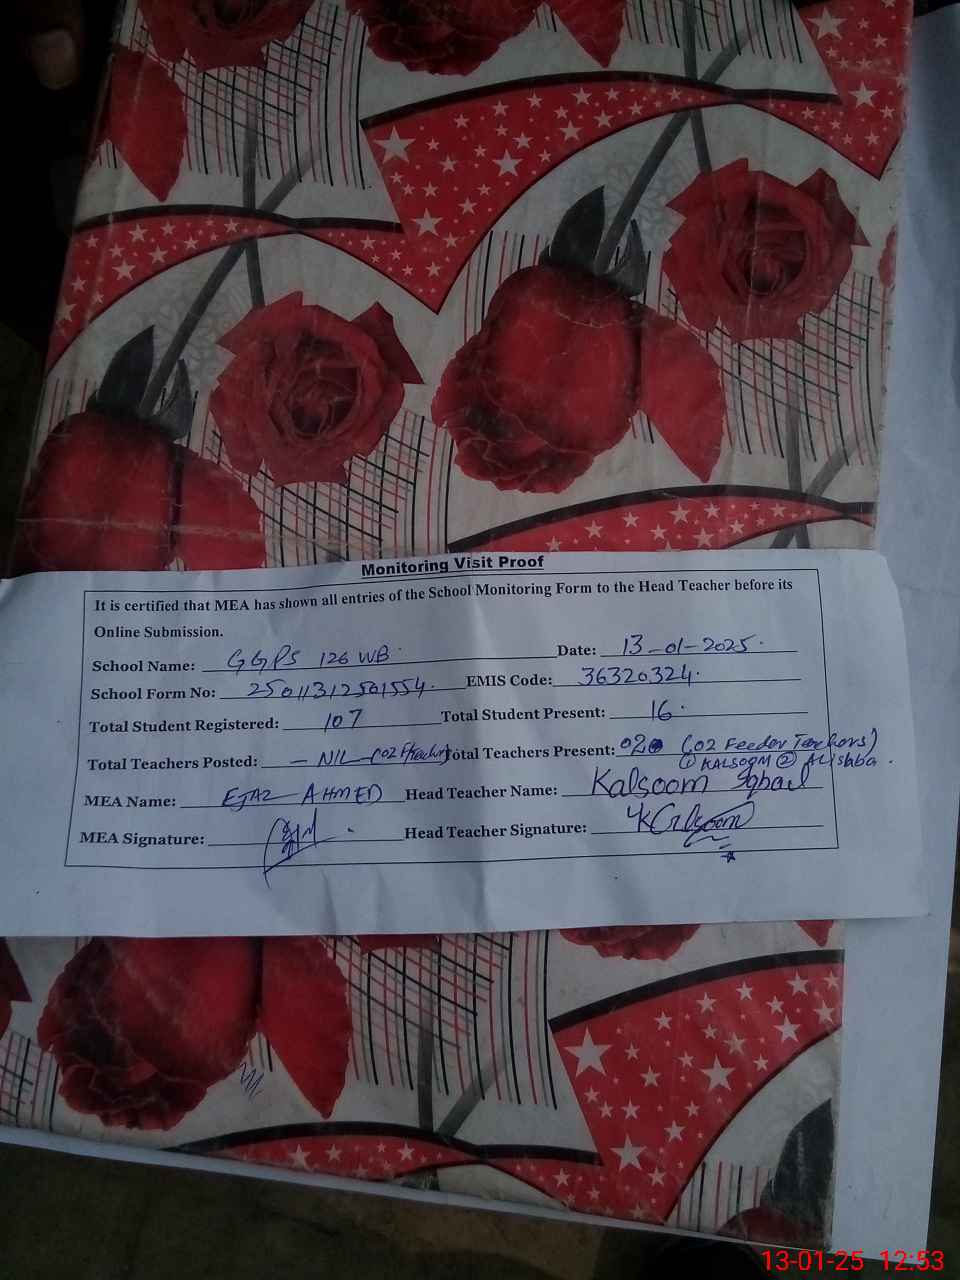 Monitoring Visit Proof
It is certified that MEA has shown all entries of the School Monitoring Form to the Head Teacher before its
Online Submission.
School Name: GGPS 126 WB Date: 13-01-2025
School Form No: 25011312501554 EMIS Code: 36320324
Total Student Registered: 107 Total Student Present: 16
Total Teachers Posted: - NIL - (02 F/Teacher) Total Teachers Present: 02 (02 Feeder Teachers)
① KALSOOM ② Alishba
MEA Name: EJAZ AHMED Head Teacher Name: Kalsoom Iqbal
MEA Signature: Head Teacher Signature: Kalsoom
13-01-25 12:53